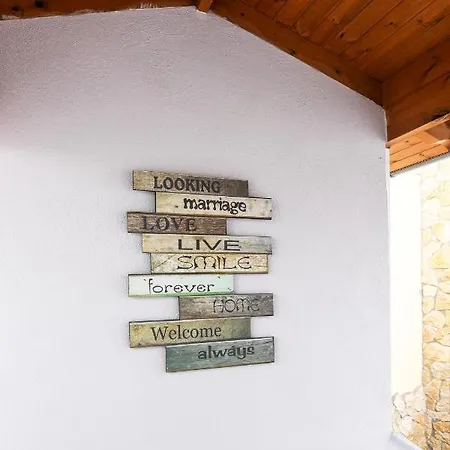 LOOKING
marriage
LOVE
LIVE
SMILE
forever
HOME
Welcome
always